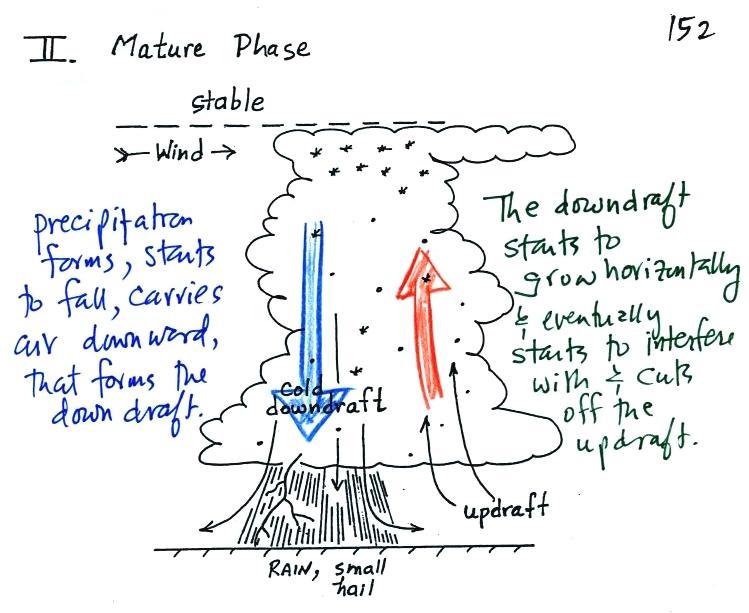 152
II. Mature Phase
stable
Wind
precipitation
forms, starts
to fall, carries
air downward,
that forms the
down draft.
The downdraft
starts to
grow horizontally
& eventually
starts to interfere
with & cuts
off the
updraft.
Cold
downdraft
updraft
RAIN, small
hail